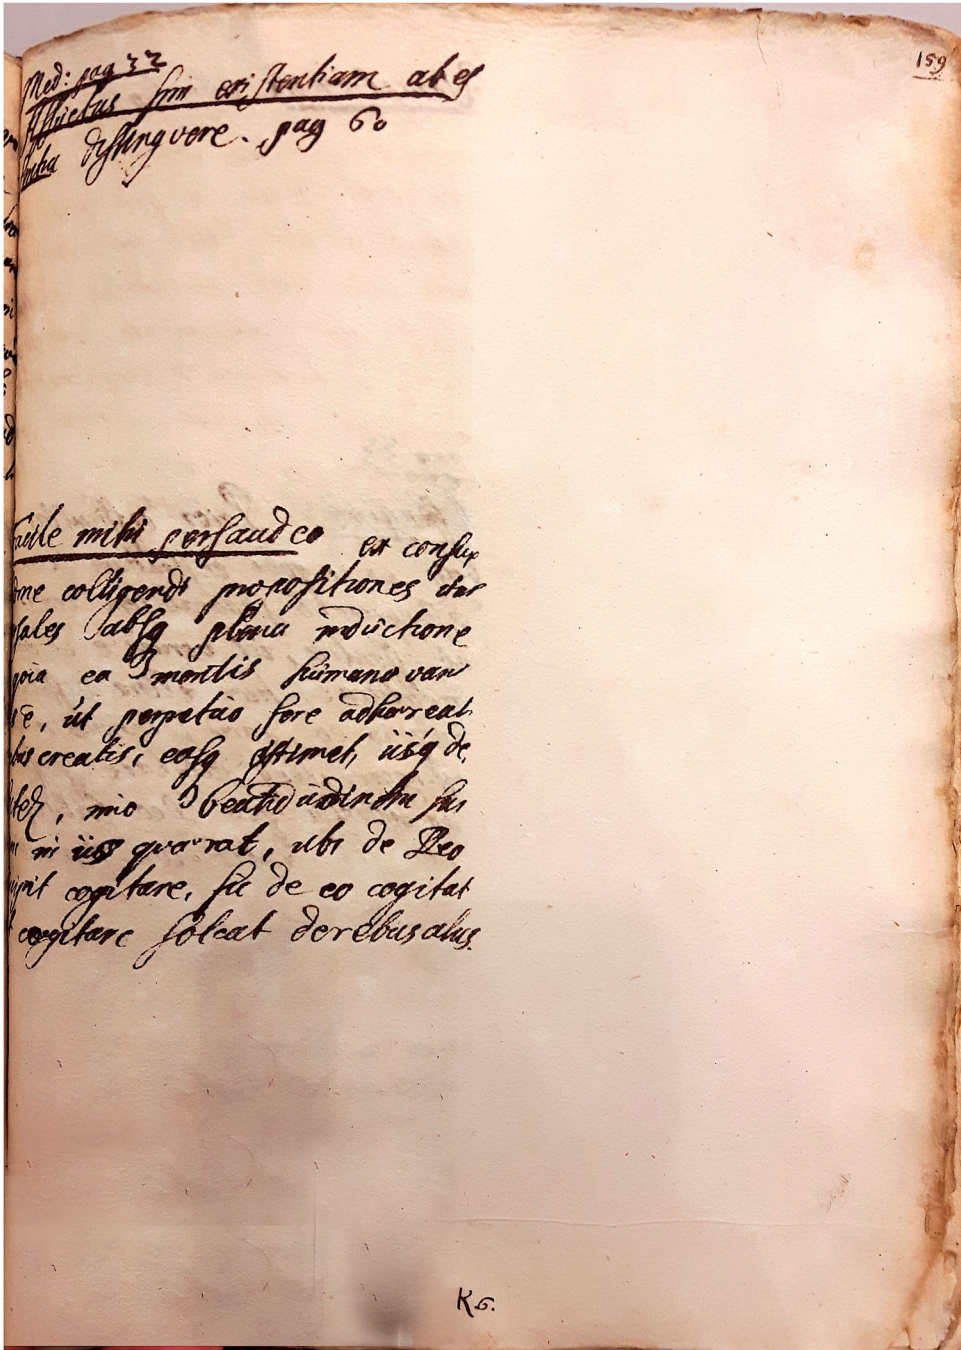 159
Med: pag 32
Assuetus sim existentiam ab es
sentia distinguere. pag 60
facile mihi persaudeo ex consue
colligendi propositiones
sales absq plena inductione
quia ea mentis humanae
ut perpetuo fere adhaereat
bus creatis, easq estimet, iisq de
imo beatitudinem sua
in iis quaerat, ubi de Deo
incipit cogitare, sic de eo cogitat
cogitare soleat de rebus aliis.
K6.